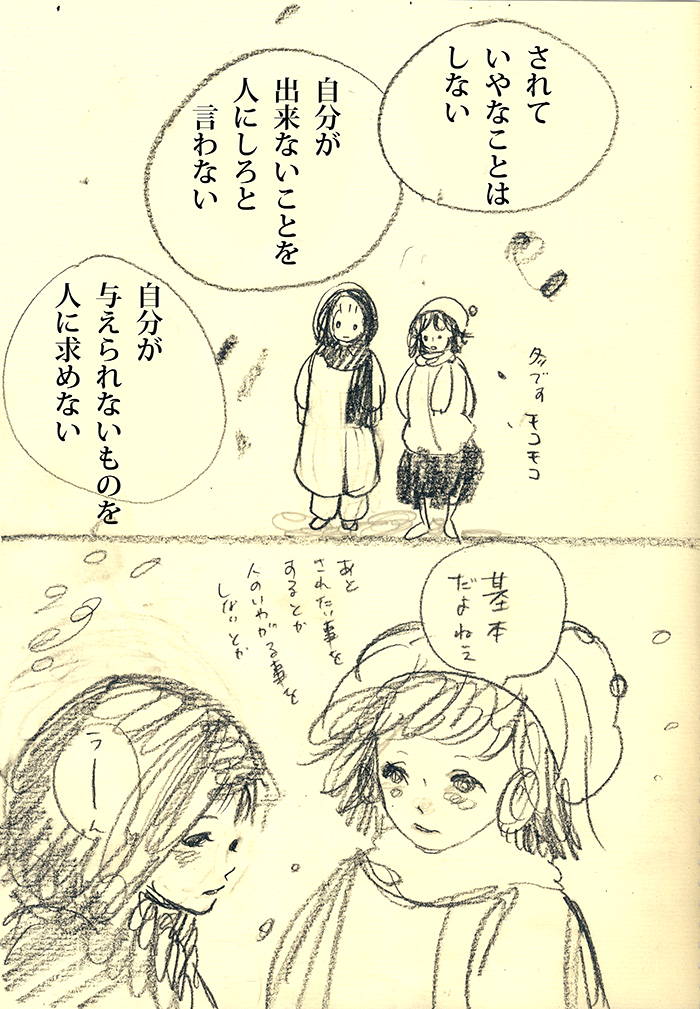 されて
いやなことは
しない
自分が
出来ないことを
人にしろと
言わない
自分が
与えられないものを
人に求めない
冬です モコモコ
基本
だよねぇ
あと
されたい事を
するとか
人のいやがる事を
しないとか
うーん